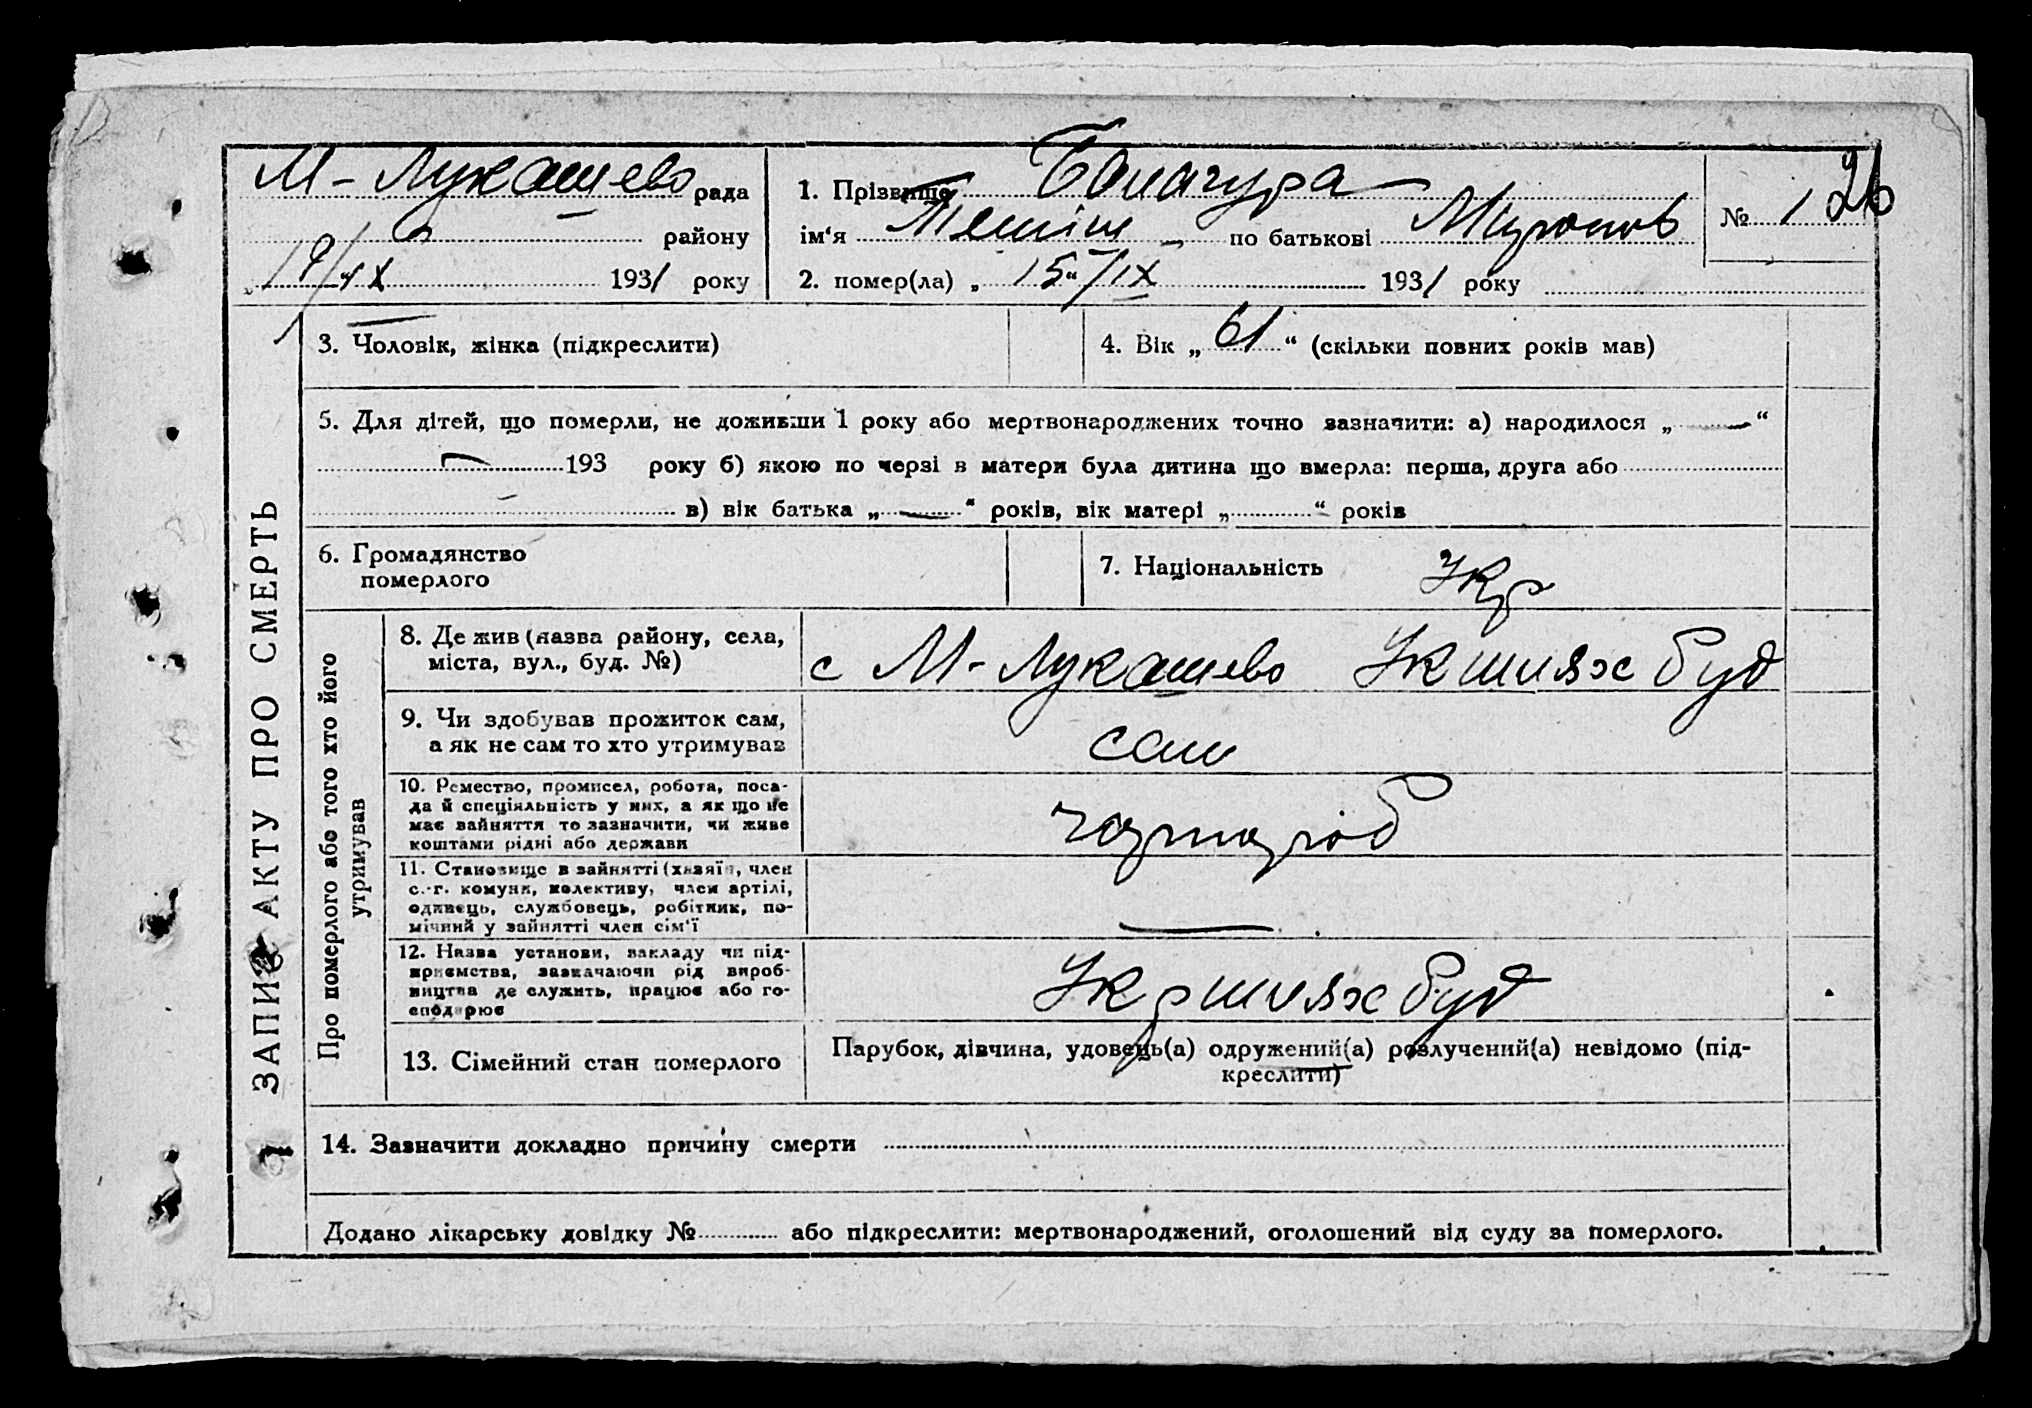 М-Лукашево рада
району
„19/IX 1931 року
1. Прізвище Балагура
ім‘я по батькові Миронов
№ 1 26
2. помер(ла) „15“/IX 1931 року
3. Чоловік, жінка (підкреслити)
4. Вік „61“ (скільки повних років мав)
5. Для дітей, що померли, не доживши 1 року або мертвонароджених точно зазначити: а) народилося „—“
— 193 року б) якою по черзі в матери була дитина що вмерла: перша, друга або
— в) вік батька „—“ років, вік матері „ “ років
6. Громадянство
померлого
7. Національність Укр
ЗАПИС АКТУ ПРО СМЕРТЬ
Про померлого або того хто його
утримував
8. Де жив (назва району, села,
міста, вул., буд. №)
с М-Лукашево Укшлях буд
9. Чи здобував прожиток сам,
а як не сам то хто утримував
сам
10. Ремество, промисел, робота, поса-
да й спеціяльність у них, а як що не
має зайняття то зазначити, чи живе
коштами рідні або держави
чорнороб
11. Становище в зайнятті (хазяїн, член
с.-г. комуни, колективу, член артілі,
одинець, службовець, робітник, по-
мічний у зайнятті член сім‘ї
—
12. Назва установи, закладу чи під-
приємства, зазначаючи рід вироб-
ництва де служить, працює або го-
сподарює
Укршляхбуд
13. Сімейний стан померлого
Парубок, дівчина, удовець(а) одружений(а) розлучений(а) невідомо (під-
креслити)
14. Зазначити докладно причину смерти
Додано лікарську довідку № або підкреслити: мертвонароджений, оголошений від суду за померлого.